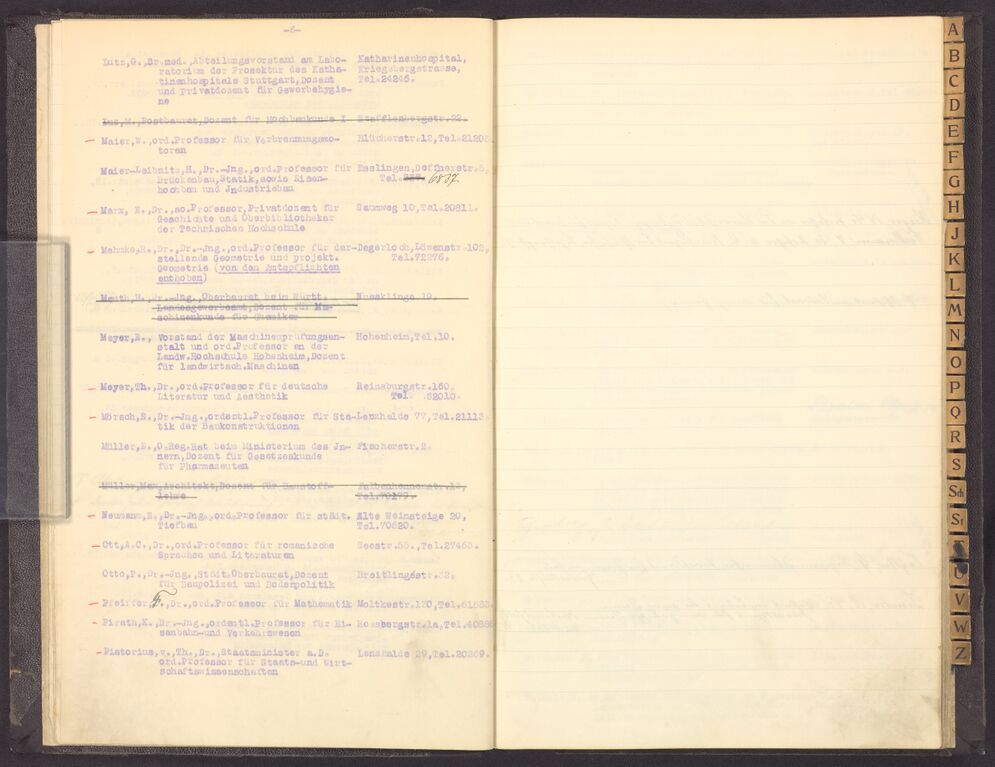 -8-
Lutz,G.,Dr.med.,Abteilungsvorstand am Labo- Katharinenhospital,
ratorium der Prosektur des Katha- Kriegsbergstrasse,
rinenhospitals Stuttgart,Dozent Tel.24246.
und Privatdozent für Gewerbehygie-
ne
Lus,M.,Postbaurat,Dozent für Hochbaukunde I Stafflenbergstr.22.
Maier,W.,ord.Professor für Verbrennungsmo- Blücherstr.12,Tel.21205
toren
Maier-Leibnitz,H.,Dr.-Jng.,ord.Professor für Esslingen,Deffnerstr.5,
Brückenbau,Statik,sowie Eisen- Tel. 6837.
hochbau und Jndustriebau
Marx, E.,Dr.,ao.Professor,Privatdozent für Saumweg 10,Tel.20811.
Geschichte und Oberbibliothekar
der Technischen Hochschule
Mehmke,R.,Dr.,Dr.-Jng.,ord.Professor für dar-Degerloch,Löwenstr.102,
stellende Geometrie und projekt. Tel.72276.
Geometrie (von den Amtspflichten
enthoben)
Meuth,H.,Dr.-Jng.,Oberbaurat beim Württ. Nussklinge 19.
Landesgewerbeamt,Dozent für Ma-
schinenkunde für Chemiker
Meyer,E., Vorstand der Maschinenprüfungsan- Hohenheim,Tel.10.
stalt und ord.Professor an der
Landw.Hochschule Hohenheim,Dozent
für landwirtsch.Maschinen
Meyer,Th.,Dr.,ord.Professor für deutsche Reinsburgstr.160.
Literatur und Aesthetik Tel. 62010.
Mörsch,E.,Dr.-Jng.,ordentl.Professor für Sta-Lenzhalde 77,Tel.21113.
tik der Baukonstruktionen
Müller,E.,O.Reg.Rat beim Ministerium des Jn- Fischerstr.2.
nern,Dozent für Gesetzeskunde
für Pharmazeuten
Müller,Max,Architekt,Dozent für Baustoff- Falkenhennenstr.13,
lehre Tel.70179.
Neumann,E.,Dr.-Jng.,ord.Professor für städt. Alte Weinsteige 20,
Tiefbau Tel.70620.
Ott,A.C.,Dr.,ord.Professor für romanische Seestr.55.,Tel.27463.
Sprachen und Literaturen
Otto,P.,Dr.-Jng.,Städt.Oberbaurat,Dozent Breitlingstr.32.
für Baupolizei und Bodenpolitik
Pfeiffer,F.,Dr.,ord.Professor für Mathematik Moltkestr.120,Tel.61583
Pirath,K.,Dr.-Jng.,ordentl.Professor für Ei- Rossbergstr.1a,Tel.40886
senbahn-und Verkehrswesen
Pistorius,v.,Th.,Dr.,Staatsminister a.D. Lenzhalde 29,Tel.20269.
ord.Professor für Staats-und Wirt-
schaftswissenschaften
A
B
C
D
E
F
G
H
J
K
L
M
N
O
P
Q
R
S
Sch
St
T
U
V
W
Z